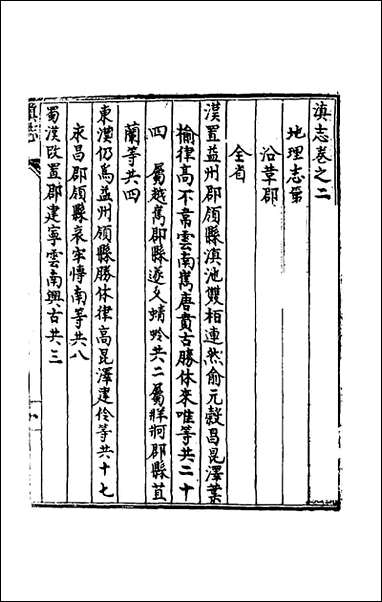 滇志卷之二
地理志第
沿革郡
全省
漢置益州郡領縣滇池雙柏連然俞元穀昌昆澤葉
榆律高不韋雲南嶲唐賁古勝休來唯等共二十
四 屬越嶲郡縣遂久蜻蛉共二屬牂牁郡縣苴
蘭等共四
東漢仍爲益州領縣勝休律高昆澤建伶等共十七
永昌郡領縣哀牢博南等共八
蜀漢改置郡建寧雲南興古共三